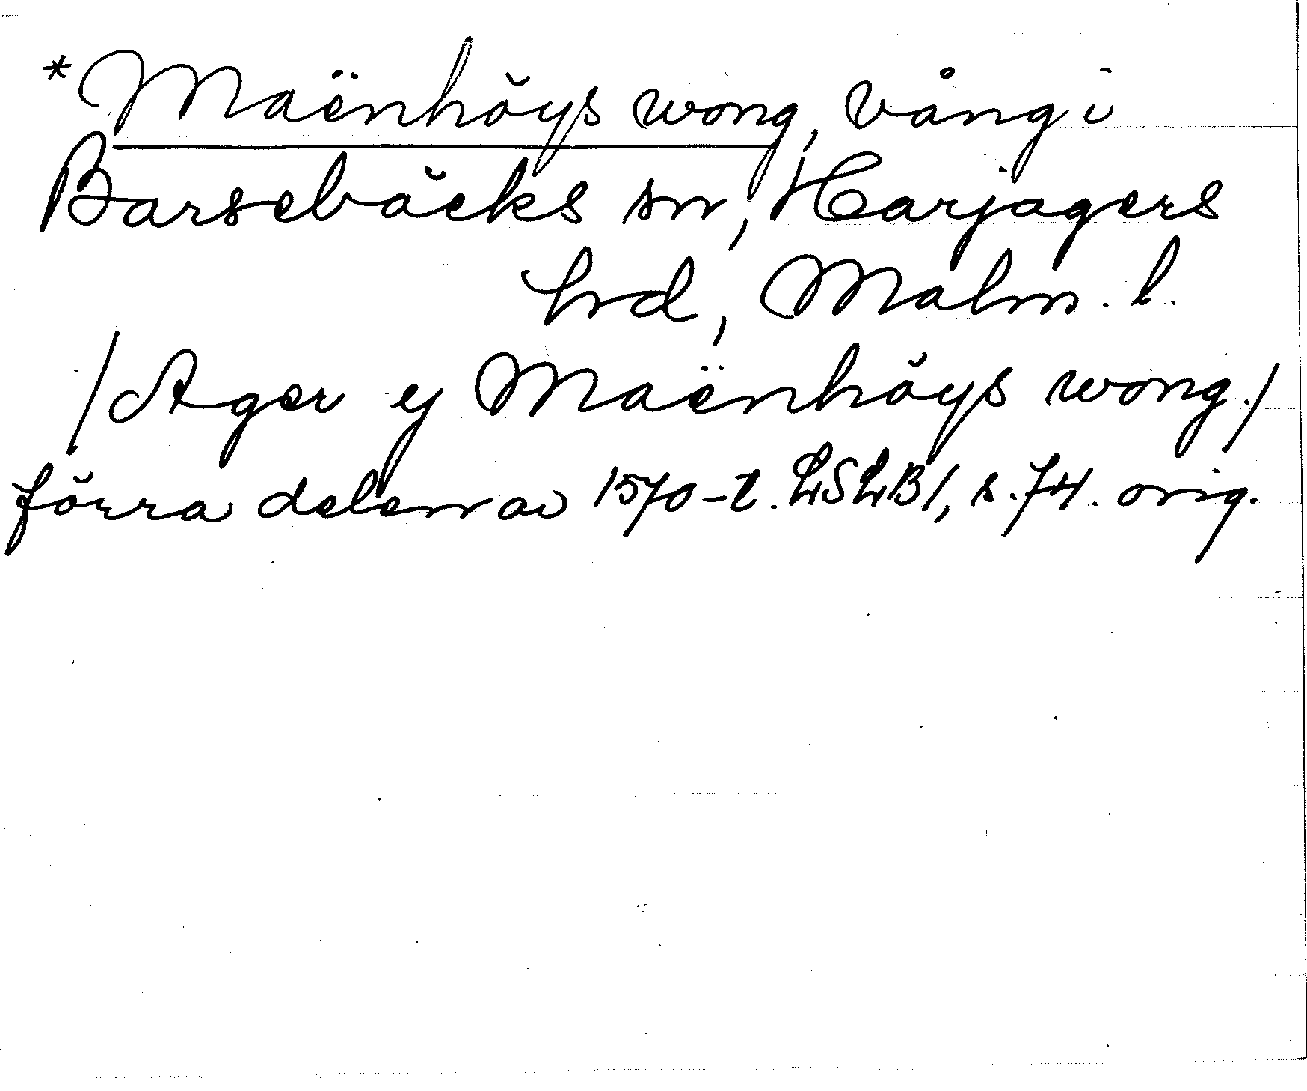 *Maënhöys wong, vång i
Barsebäcks sn, Harjagers
hrd, Malm. l.
/Ager ey Maënhöys wong./
förra delen av 1570-t. LSLB1, s. 74. orig.